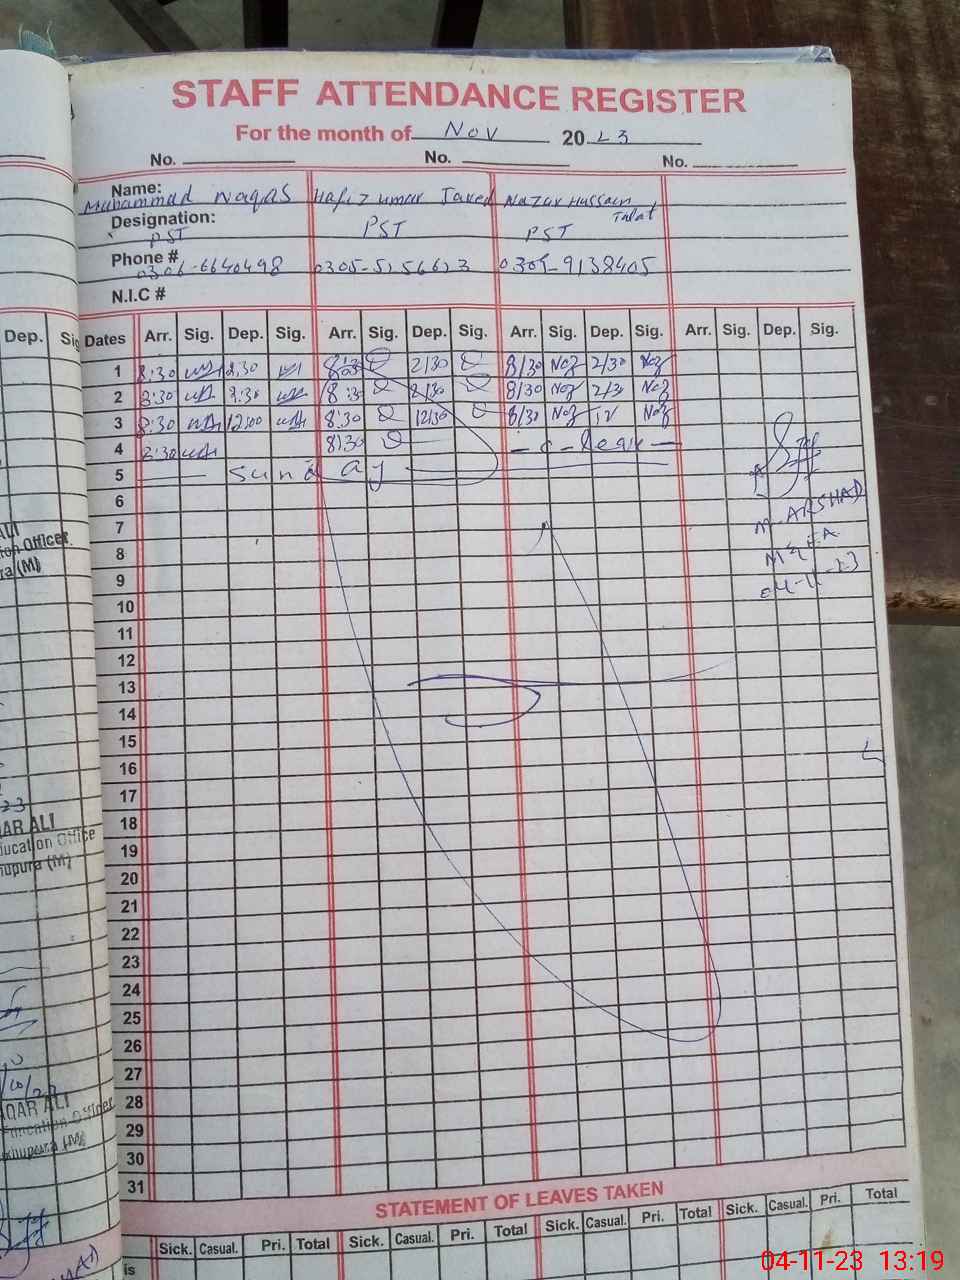 STAFF ATTENDANCE REGISTER
For the month of Nov 2023
No. No. No.
Name: Muhammad Waqas Hafiz Umar Javed Nazar Hussain Talat
Designation: PST PST PST
Phone # 0306-6640498 0305-5156623 0305-9138405
N.I.C #
Dep. Sig
Dates Arr. Sig. Dep. Sig. Arr. Sig. Dep. Sig. Arr. Sig. Dep. Sig. Arr. Sig. Dep. Sig.
1 8:30 2:30 8:30 2/30 8/30 Naz 2/30 Naz
2 8:30 2:30 8:30 2/30 8/30 Naz 2/3 Naz
3 8:30 12:00 8:30 12/30 8/30 Naz 12 Naz
4 8:30 8/30 - c - Leave -
5 Sunday
6
7
8
9
10
11
12
13
14
15
16
17
18
19
20
21
22
23
24
25
26
27
28
29
30
31
M. ARSHAD
MEA
04-11-23
ALI
ion Officer
ra (M)
23
QAR ALI
ducation Office
hupura (M)
/10/23
QAR ALI
Education Officer
khupura (M)
STATEMENT OF LEAVES TAKEN
Sick. Casual. Pri. Total Sick. Casual. Pri. Total Sick. Casual. Pri. Total Sick. Casual. Pri. Total
is
04-11-23 13:19